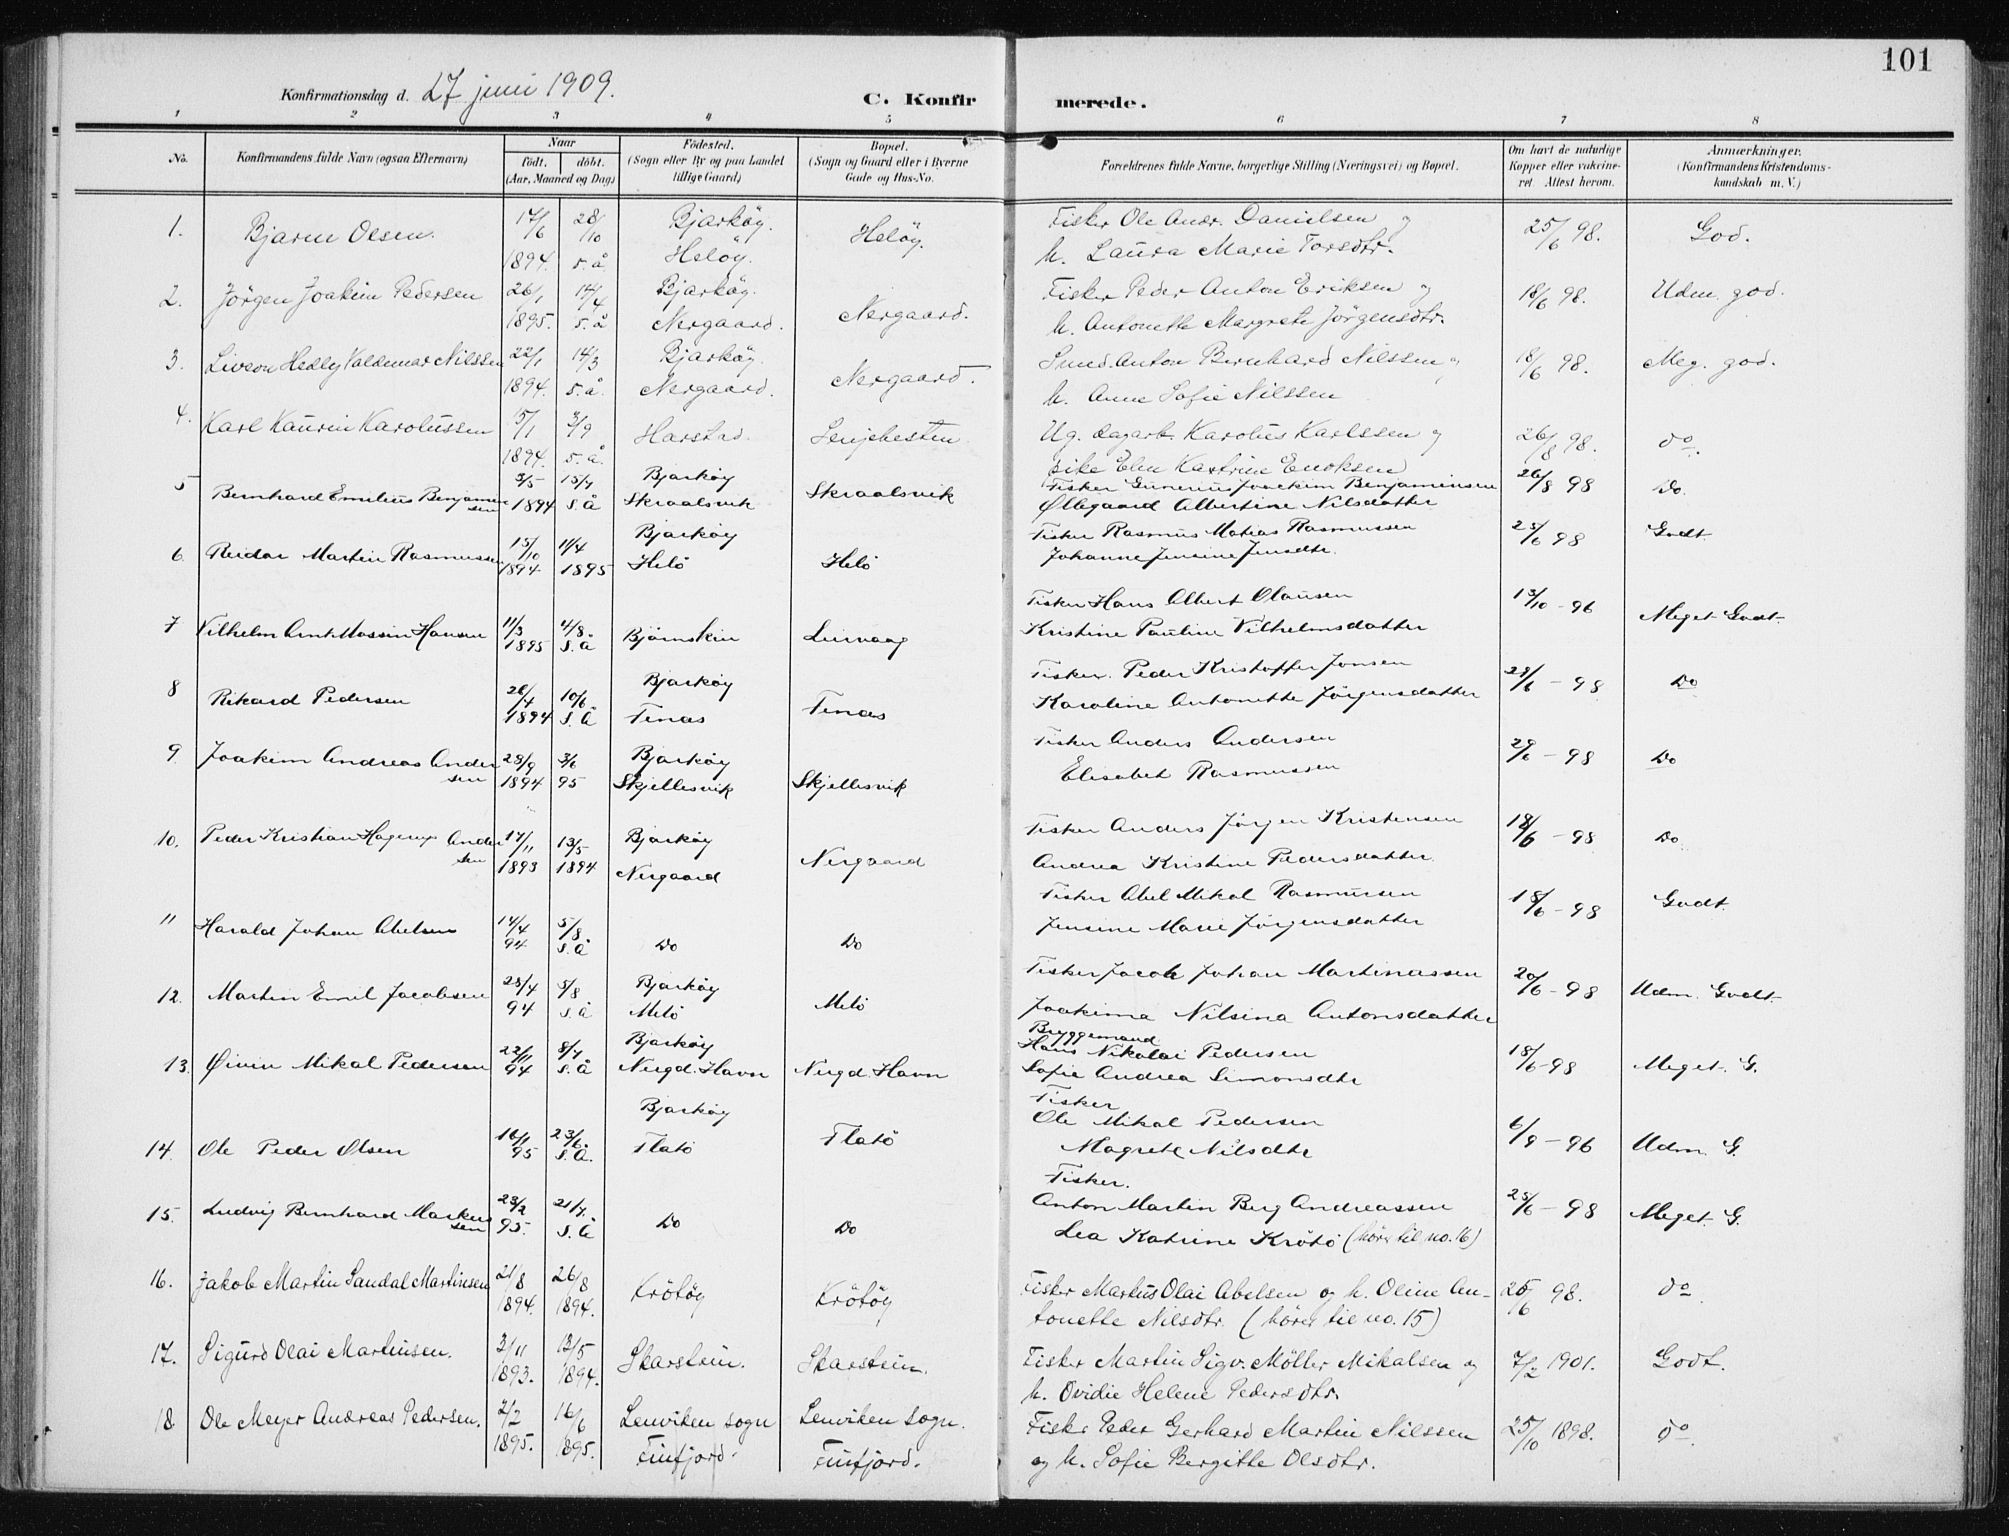 101
Konfirmationsdag d. 27 juni 1909.
C. Konfirmerede.
1 2 3 4 5 6 7 8
No. Konfirmandens fulde Navn (ogsaa Efternavn) Naar født. døbt. (Aar, Maaned og Dag) Fødested. (Sogn eller By og paa Landet tillige Gaard) Bopæl. (Sogn og Gaard eller i Byerne Gade og Hus-No. Forældrenes fulde Navne, borgerlige Stilling (Næringsvei) og Bopæl. Om havt de naturlige Kopper eller vakcineret. Attest herom. Anmærkninger. (Konfirmandens Kristendomskundskab m. V.)
1. Bjarne Olsen. 17/6 1894. 28/10 s. å. Bjarköy. Helöy. Helöy. Fisker Ole Andr. Danielsen og h. Laura Marie Torsdtr. 25/6 98. God.
2. Jörgen Joakim Pedersen 26/1 1895. 14/4 s. å Bjarköy. Nergaard. Nergaard. Fisker Peder Anton Eriksen og h. Antonette Margrete Jörgensdtr. 18/6 98. Udm. god.
3. Hedley Valdemar Nilssen 22/1 1894. 14/3 s. å. Bjarköy. Nergaard. Nergaard. Smed Anton Bernhard Nilssen og h. Anne Sofie Nilssen 18/6 98. Meg. god.
4. Karl Kaurin Karolussen 15/1 1894. 3/9 s. å. Harstad. Senjehesten Ug. dagarb. Karolus Karlssen og pike Elen Katrine Enoksen 26/8 98. do.
5 Bernhard Emilius Benjaminsen 3/5 1894 15/7 S. Å Bjarköy Skraalsvik Skraalsvik Fisker Gunerius Joackim Benjaminsen Øllegaard Albertine Nilsdatter 26/8 98 Do.
6. Reidar Martin Rasmussen 15/10 1894 11/4 1895 Bjarköy Helö Helö Fisker Rasmus Matias Rasmussen Johanne Jensine Jensdtr. 25/6 98 Godt
7 Vilhelm Arnt Hansen 11/3 1895 4/8. S. Å Leirvaag Fisker Hans Albert Olausen Kristine Pauline Vilhelmsdatter 13/10 - 96 Meget Godt.
8 Rikard Pedersen 26/4 1894 10/6 S. Å Bjarköy Tenas Tenas Fisker. Peder Kristoffer Jonsen Karoline Antonette Jörgensdatter 25/6 - 98 Do
9 Joakim Andreas Andersen 25/9 1894 3/6 95 Bjarköy Skjellesvik Skjellesvik Fisker Anders Andersen Elisabet Rasmussen 29/6 - 98 Do
10. Peder Kristian Hagerup Andersen 17/11 1893 13/5 1894 Bjarköy Nergaard Nergaard Fisker Anders Jörgen Kristensen Andrea Kristine Pedersdatter 18/6 - 98 Do
11 Harald Johan Abelsen 14/4 94 5/8 S. Å Do Do Fisker Abel Mikal Rasmussen Jensine Marie Jörgensdatter 18/6 - 98 Godt.
12. Martin Emil Jacobsen 25/4 94 5/8 S. Å Bjarköy Melö Melö Fisker Jacob Johan Martinussen Joakima Nilsina Antonsdatter 20/6 - 98 Udm. Godt
13. Øivin Mikal Pedersen 22/11 94 8/7 S. Å Bjarköy Nergd. Havn Nergd. Havn Bryggemand Hans Nikolai Pedersen Sofie Andrea Simonsdtr 18/6 - 98 Meget. G.
14. Ole Peder Olsen 16/1 95 23/6. S. Å. Bjarköy Flatö Flatö Fisker Ole Mikal Pedersen Magrete Nilsdtr 6/9 - 96 Udm. G.
15. Ludvig Bernhard Markussen 23/2 95. 21/7. S. Å Do Do Fisker. Anton Martin Berg Andreassen Lea Katrine Krötö (hörer til no. 16) 25/6 - 98 Meget. G.
16. Jakob Martin Sandal Martinsen 21/8 1894. 26/8 1894. Krötöy Krötöy Fisker Markus Olai Abelsen og h. Oline Antonette Nilsdtr. (hörer til no. 15) 25/6 98. do
17. Sigurd Olai Martinsen. 3/11 1893. 13/5 1894. Skarstein. Skarstein. Fisker Martin Sigv. Möller Mikalsen og h. Ovidie Helene Pedersdtr. 7/2 1901. Godt.
18. Ole Meyer Andreas Pedersen. 2/2 1895. 16/6 1895. Lenviken sogn Finfjord. Lenviken sogn. Finfjord. Fisker Peder Gerhard Martin Nilssen og h. Sofie Bergitte Olsdtr. 25/10 1898. do.